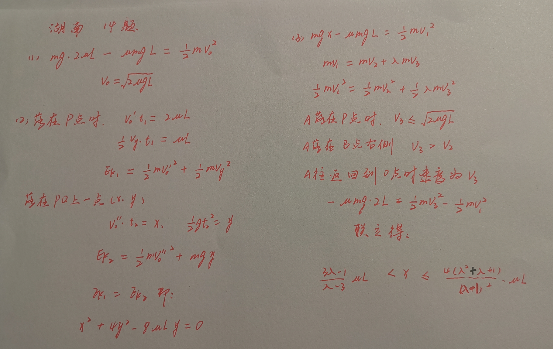 湖南 14题
(1) mg·2μL - μmgL = ½mv₀²
v₀ = √2μgL
(2) 落在P点时 v₀'t₁ = 2μL
½v_y·t₁ = μL
Ek₁ = ½mv₀'² + ½mv_y²
落在PQ上一点(x, y)
v₀''·t₂ = x, ½gt₂² = y
Ek₂ = ½mv₀''² + mgy
Ek₁ = Ek₂ 即:
x² + 4y² - 8μLy = 0
(3) mgx - μmgL = ½mv₁²
mv₁ = mv₂ + λmv₃
½mv₁² = ½mv₂² + ½λmv₃²
A落在P点时, V₃ ≤ √2μgL
A落在B点右侧 V₃ > V₂
A往返回到O点时速度为V₃
-μmg·2L = ½mv₃² - ½mv₂²
联立得.
(3λ-1)/(λ-3) μL < x ≤ 4(λ²+λ+1)/(λ+1)² · μL